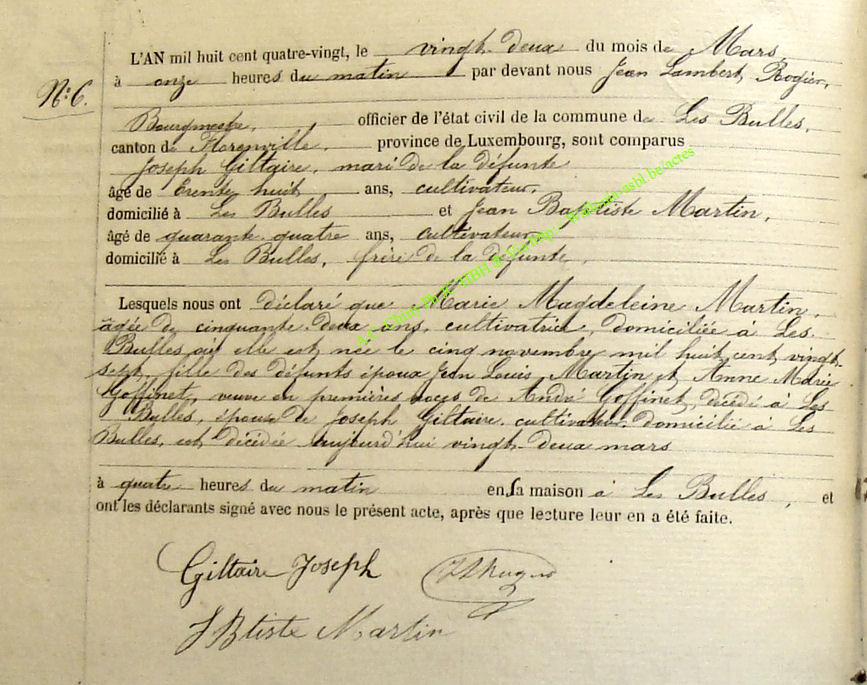 L'AN mil huit cent quatre-vingt, le vingt-deux du mois de Mars
à onze heures du matin par devant nous Jean Lambert Rogier,
N° 6.
Bourgmestre, officier de l'état civil de la commune de Les Bulles,
canton de Florenville, province de Luxembourg, sont comparus
Joseph Giltaire, mari de la défunte
âgé de trente huit ans, cultivateur,
domicilié à Les Bulles et Jean Baptiste Martin,
âgé de quarante quatre ans, cultivateur
domicilié à Les Bulles, frère de la défunte,
Lesquels nous ont déclaré que Marie Magdeleine Martin,
âgée de cinquante-deux ans, cultivatrice, domiciliée à Les
Bulles où elle est née le cinq novembre mil huit cent vingt-
sept, fille des défunts époux Jean Louis Martin et Anne Marie
Goffinet, veuve en premières noces de André Goffinet, décédé à Les
Bulles, épouse de Joseph Giltaire, cultivateur, domicilié à Les
Bulles, est décédée aujourd'hui vingt-deux mars
à quatre heures du matin en sa maison à Les Bulles, et
ont les déclarants signé avec nous le présent acte, après que lecture leur en a été faite.
Giltaire Joseph
J Btiste Martin